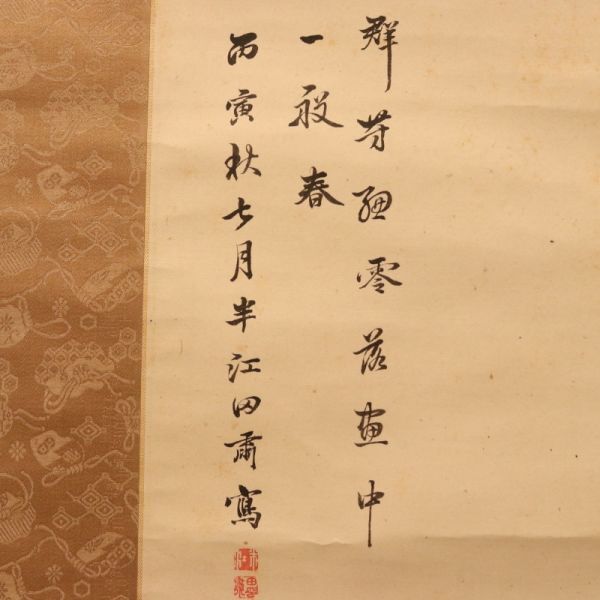 群芳縱零落畫中
一般春
丙寅秋七月半江田肅寫